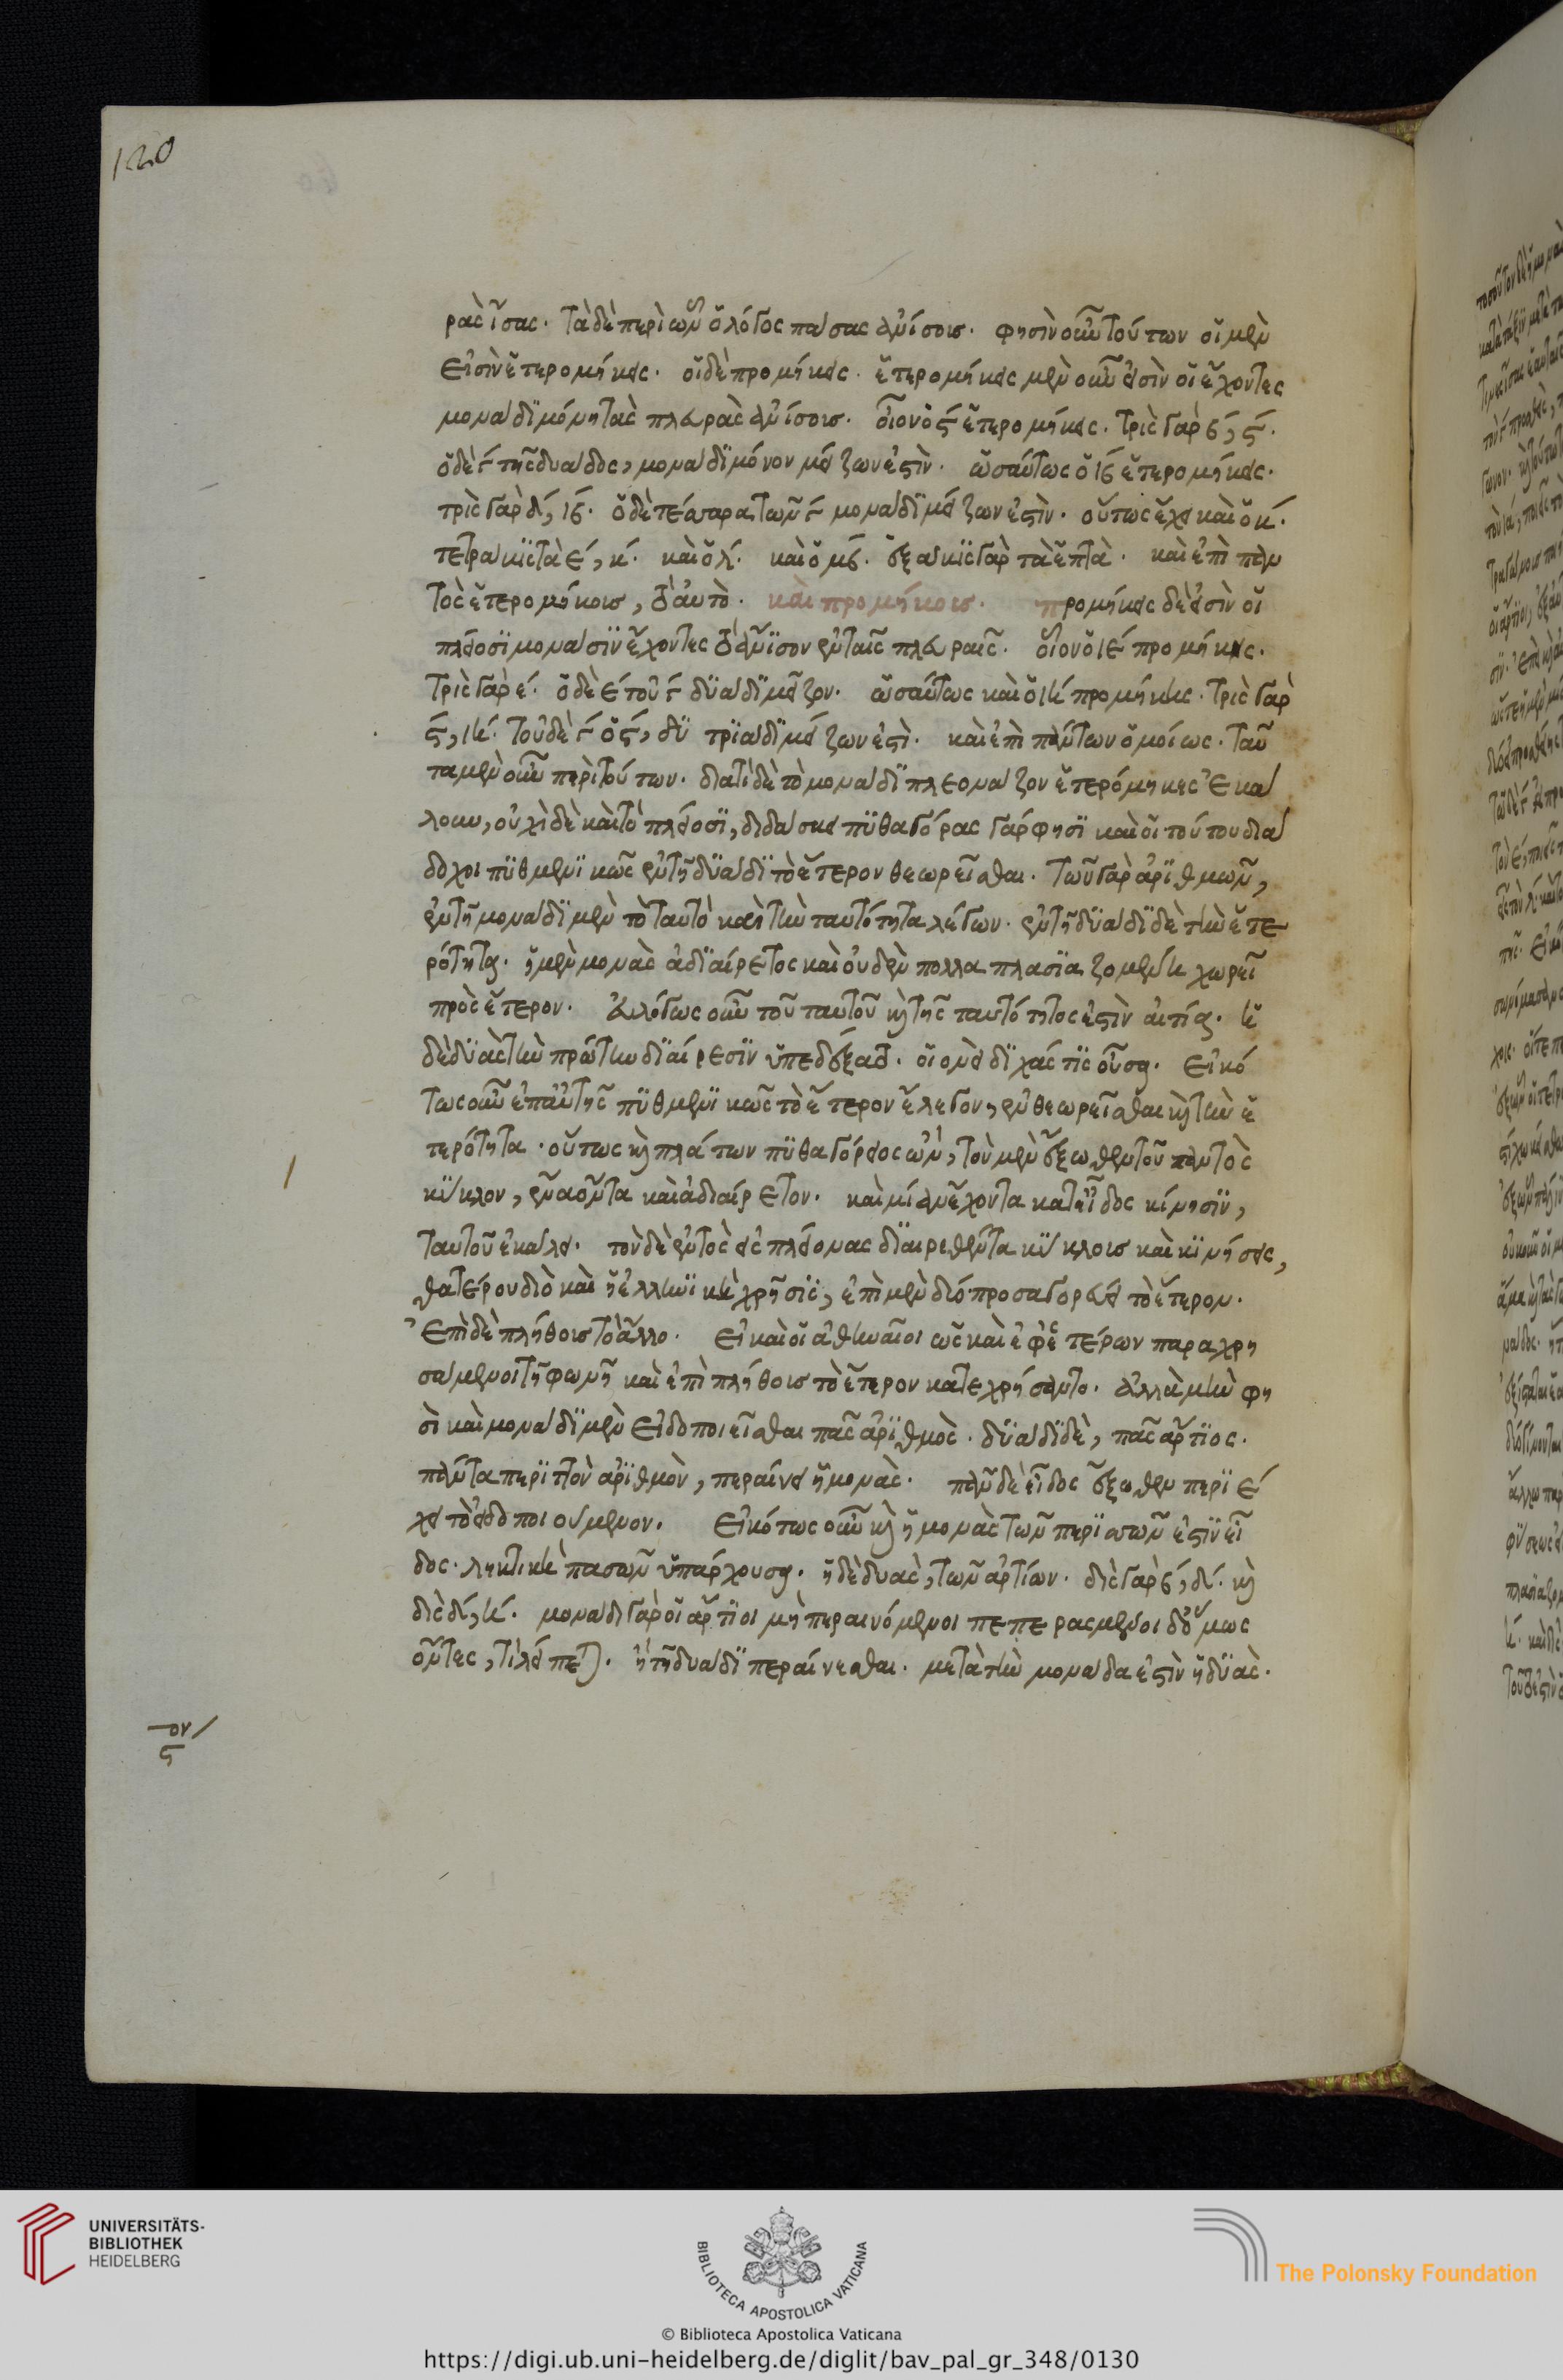 120
ρὰς ἴσας. τὰ δὲ περὶ ὧν ὁ λόγος πάσας ἀνίσους. φησὶν οὖν τούτων οἱ μὲν
εἰσὶν ἑτερομήκεις. οἱ δὲ προμήκεις. ἑτερομήκεις μὲν οὖν εἰσὶν οἱ ἔχοντες
μονάδι μόνῃ τὰς πλευρὰς ἀνίσους. οἷον ὁ ϛ ἑτερομήκης. τρὶς γὰρ β, ϛ.
ὁ δὲ γ τῆς δυάδος, μονάδι μόνον μείζων ἐστὶν. ὡσαύτως ὁ ιβ ἑτερομήκης.
τρὶς γὰρ δ, ιβ. ὁ δὲ τέσσαρα τῶν γ μονάδι μείζων ἐστὶν. οὕτως ἔχει καὶ ὁ κ.
τετράκις τὰ ε, κ. καὶ ὁ λ. καὶ ὁ μβ. ἑξάκις γὰρ τὰ ἑπτὰ. καὶ ἐπὶ παν
τὸς ἑτερομήκους, τὸ αὐτὸ. καὶ προμήκους. προμήκεις δὲ εἰσὶν οἱ
πλείοσι μονάσιν ἔχοντες τὸ ἄνισον ἐν ταῖς πλευραῖς. οἷον ὁ ιε προμήκης.
τρὶς γὰρ ε. ὁ δὲ ε τοῦ γ δυάδι μεῖζον. ὡσαύτως καὶ ὁ ιη προμήκης. τρὶς γὰρ
ϛ, ιη. τοῦ δὲ γ ὁ ϛ, ἐν τριάδι μείζων ἐστὶ. καὶ ἐπὶ πάντων ὁμοίως. ταῦ
τα μὲν οὖν περὶ τούτων. διατί δὲ τὸ μονάδι πλεονάζον ἑτερόμηκες ἐκά
λουν, οὐχὶ δὲ καὶ τὸ πλείοσι, διδάσκει πυθαγόρας γάρ φησι καὶ οἱ τούτου διά
δοχοι πυθμενικῶς ἐν τῇ δυάδι τὸ ἕτερον θεωρεῖσθαι. τῶν γὰρ ἀριθμῶν,
ἐν τῇ μονάδι μὲν τὸ ταυτὸ καὶ τὴν ταυτότητα λέγων. ἐν τῇ δυάδι δὲ τὴν ἑτε
ρότητα. ἡ μὲν μονὰς ἀδιαίρετος καὶ οὐδὲν πολλαπλασιαζομένη χωρεῖ
πρὸς ἕτερον. εὐλόγως οὖν τοῦ ταυτοῦ καὶ τῆς ταυτότητος ἐστὶν αἰτία. ἡ
δὲ δυὰς τὴν πρώτην διαίρεσιν ὑπεδέξατο. οἱονεὶ διχάς τις οὖσα. εἰκό
τως οὖν ἐπ' αὐτῆς πυθμενικῶς τὸ ἕτερον ἔλεγον, ἐνθεωρεῖσθαι καὶ τὴν ἑ
τερότητα. οὕτως καὶ πλάτων πυθαγόρειος ὢν, τὸν μὲν ἔξωθεν τοῦ παντὸς
κύκλον, ἕνα ὄντα καὶ ἀδιαίρετον. καὶ μίαν ἔχοντα κατ' εἶδος κίνησιν,
ταυτοῦ ἐκάλει. τὸν δὲ ἐντὸς εἰς πλείονας διαιρεθέντα κύκλους καὶ κινήσεις,
θατέρου διὸ καὶ ἡ ἑλληνικὴ χρῆσις, ἐπὶ μὲν δύο προσαγορεύει τὸ ἕτερον.
ἐπὶ δὲ πλήθους τὸ ἄλλο. εἰ καὶ οἱ ἀθηναῖοι ὡς καὶ ἐφ' ἑτέρων παραχρη
σάμενοι τῇ φωνῇ καὶ ἐπὶ πλήθους τὸ ἕτερον κατεχρήσαντο. ἀλλὰ μὴν φη
σὶ καὶ μονάδι μὲν εἰδοποιεῖσθαι πᾶς ἀριθμὸς. δυάδι δὲ, πᾶς ἄρτιος.
πάντα περιττὸν ἀριθμὸν, περαίνει ἡ μονὰς. πᾶν δὲ εἶδος ἔξωθεν περιέ
χει τὸ εἰδοποιούμενον. εἰκότως οὖν καὶ ἡ μονὰς τῶν περισσῶν ἐστὶν εἶ
δος. ληκτικὴ πασῶν ὑπάρχουσα. ἡ δὲ δυὰς, τῶν ἀρτίων. δὶς γὰρ β, δ. καὶ
δὶς δ, η. μονάδι γὰρ οἱ ἄρτιοι μὴ περαινόμενοι πεπερασμένοι δ' ὅμως
ὄντες, τί λείπεται. ἢ τῇ δυάδι περαίνεσθαι. μετὰ τὴν μονάδα ἐστὶν ἡ δυὰς.
UNIVERSITÄTS-
BIBLIOTHEK
HEIDELBERG
BIBLIOTECA APOSTOLICA VATICANA
The Polonsky Foundation
© Biblioteca Apostolica Vaticana
https://digi.ub.uni-heidelberg.de/diglit/bav_pal_gr_348/0130